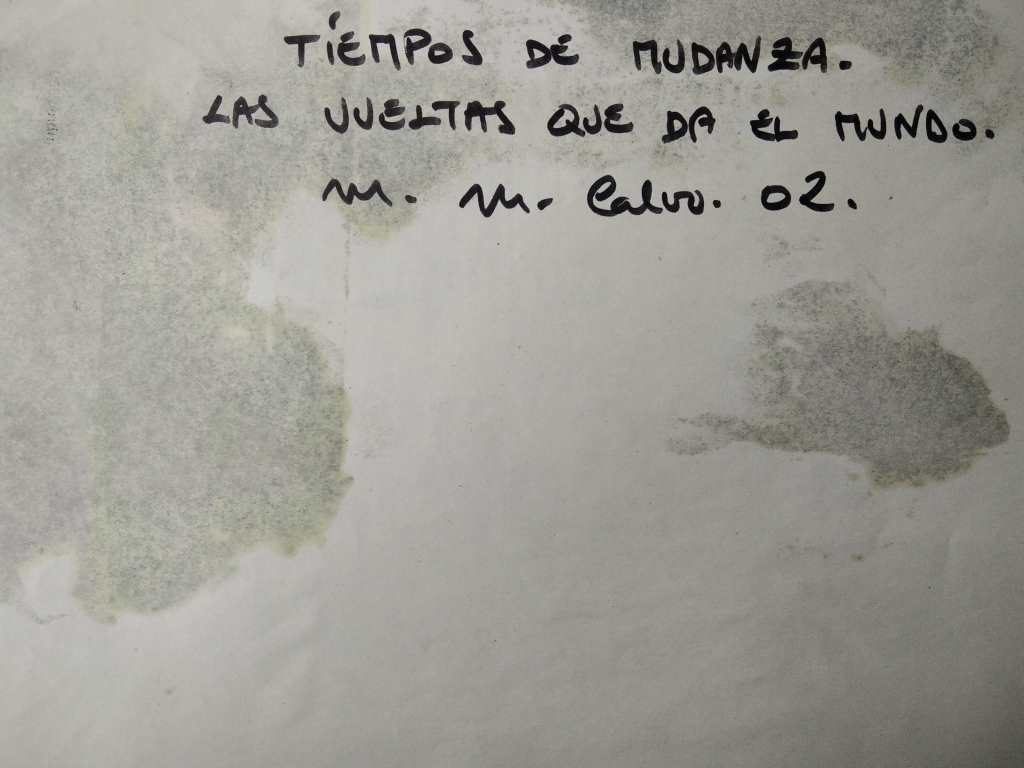 TIEMPOS DE MUDANZA.
LAS VUELTAS QUE DA EL MUNDO.
M. M. Calvo. 02.